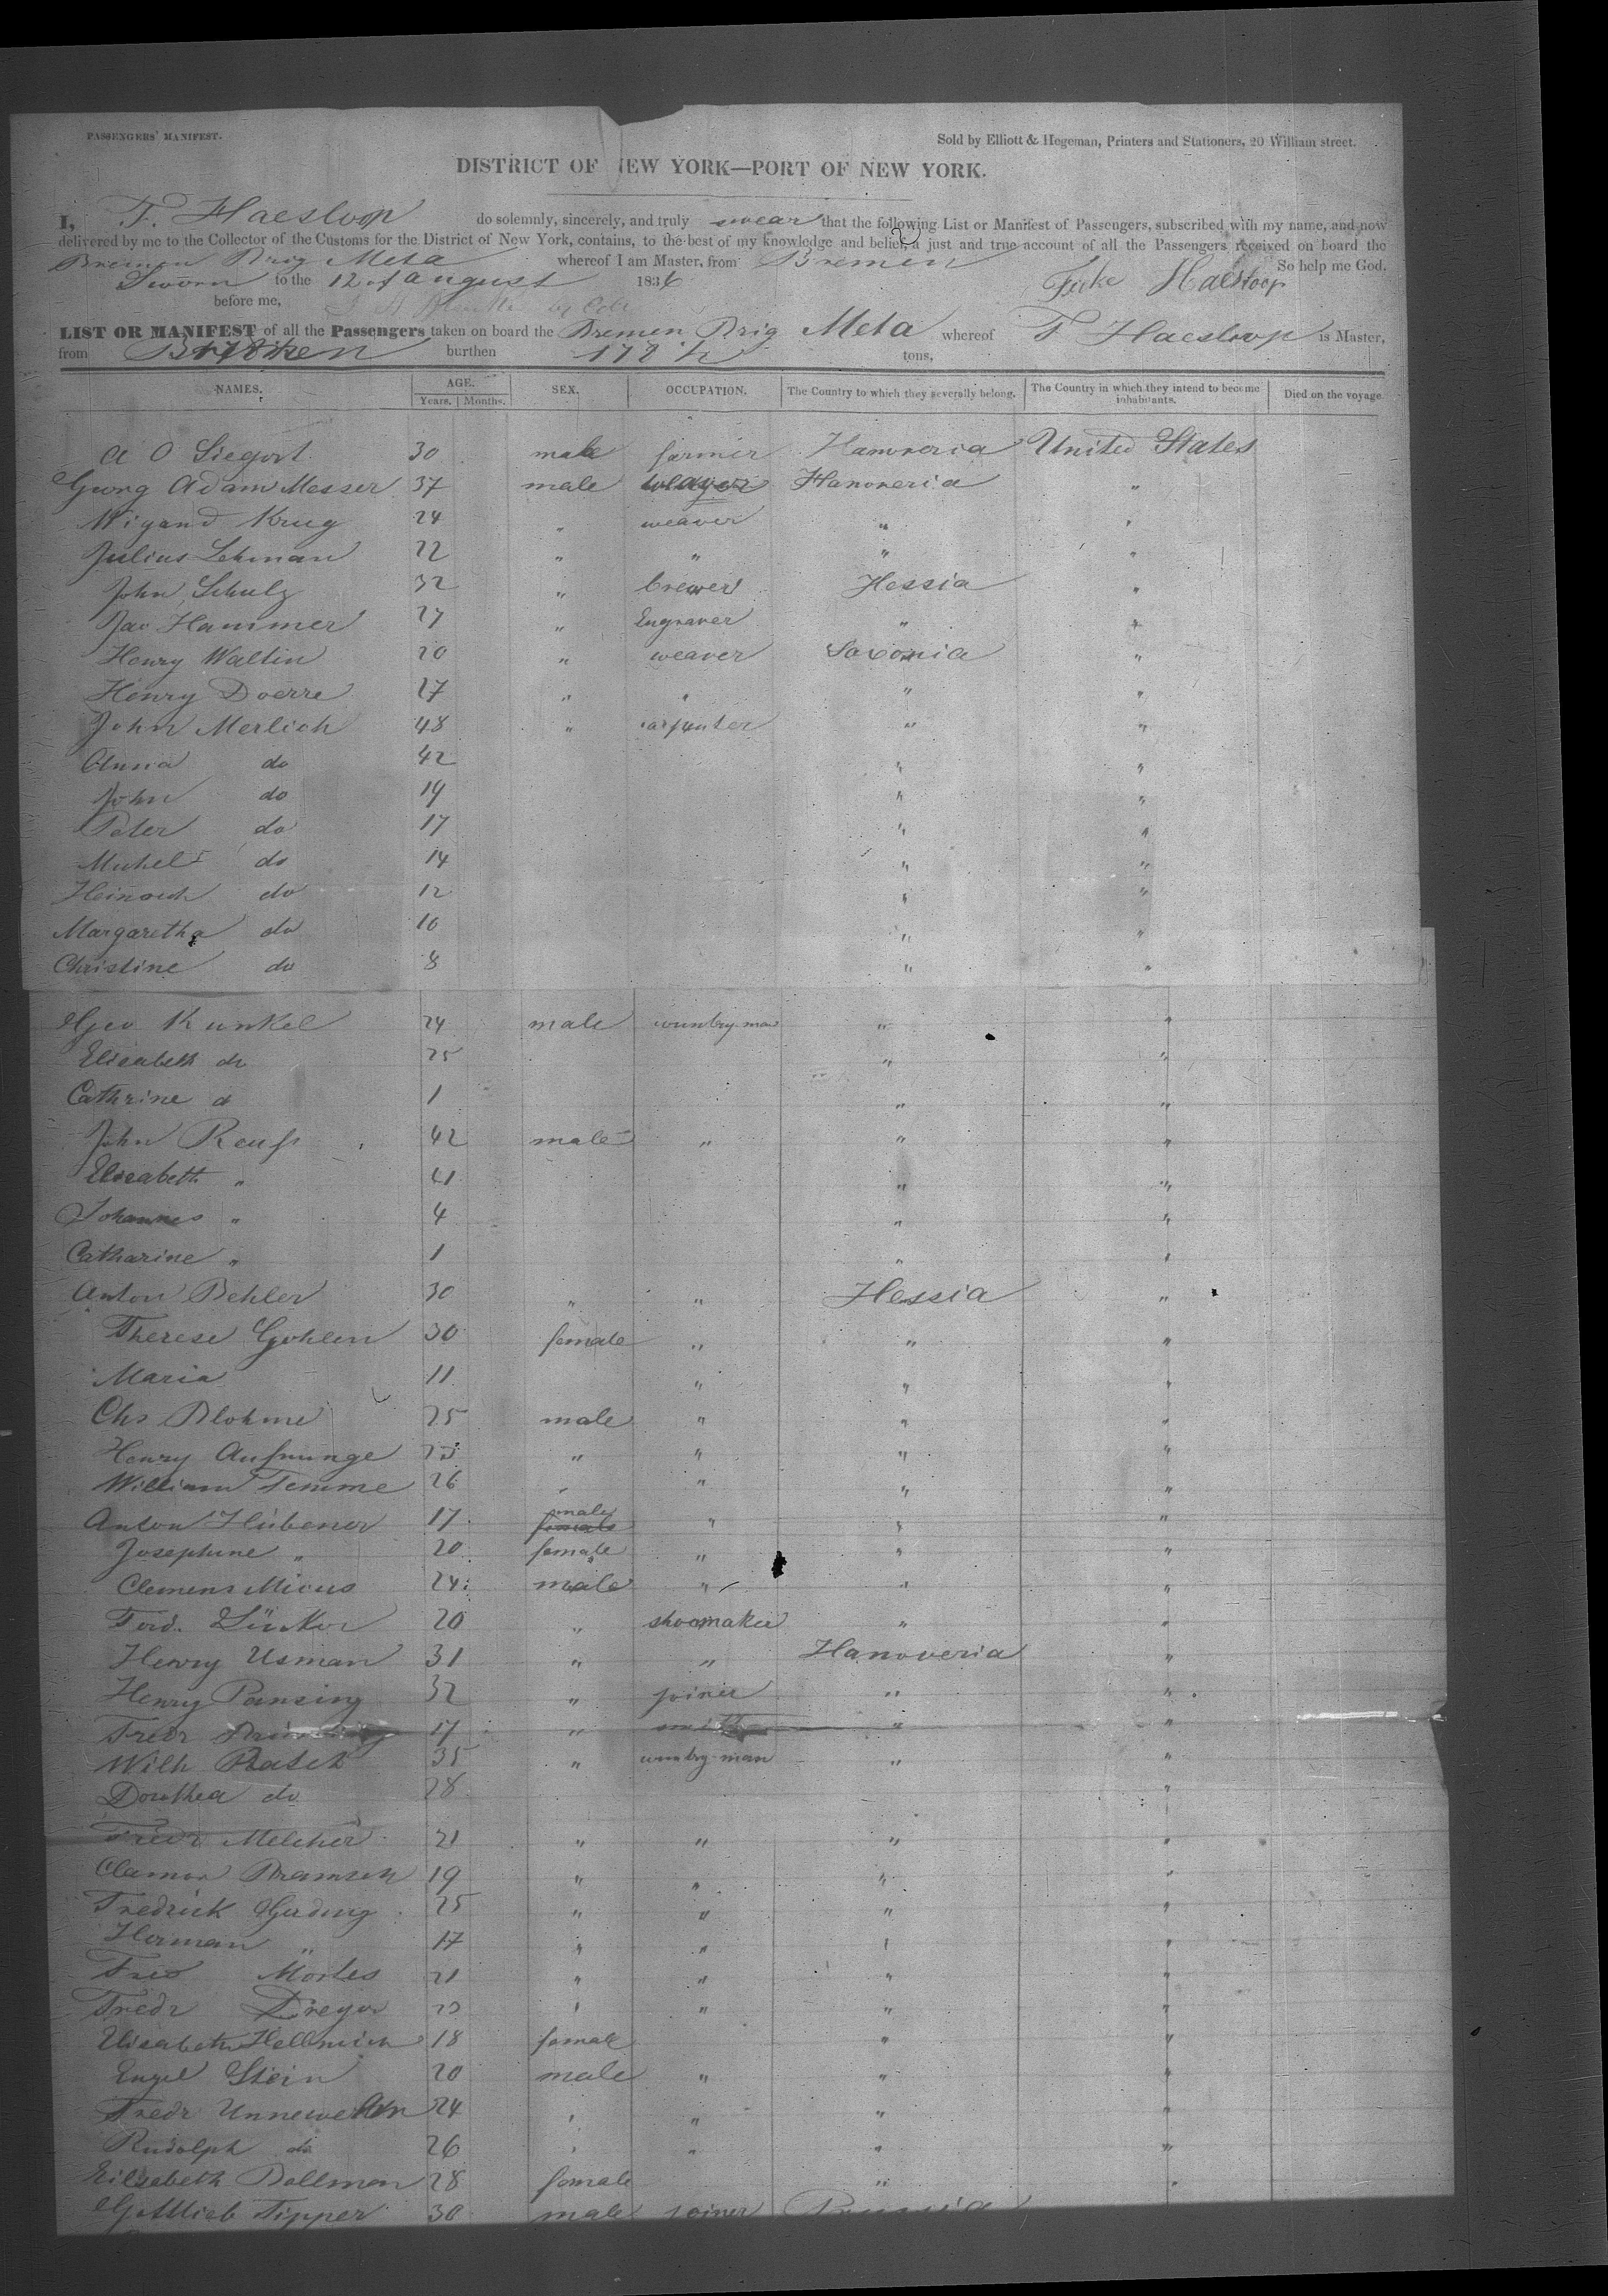 PASSENGERS' MANIFEST.
Sold by Elliott & Hegeman, Printers and Stationers, 20 William street.
DISTRICT OF NEW YORK—PORT OF NEW YORK.
I, F. Haesloop do solemnly, sincerely, and truly swear that the following List or Manifest of Passengers, subscribed with my name, and now
delivered by me to the Collector of the Customs for the District of New York, contains, to the best of my knowledge and belief, a just and true account of all the Passengers received on board the
Bremen Brig Meta whereof I am Master, from Bremen So help me God.
Sworn to the 12 of August 1836 Haesloop
before me,
LIST OR MANIFEST of all the Passengers taken on board the Bremen Brig Meta whereof F Haesloop is Master,
from Bremen burthen 178 tons,
NAMES. AGE. SEX. OCCUPATION. The Country to which they severally belong. The Country in which they intend to become inhabitants. Died on the voyage
Years. Months.
A O Siegort 30 male farmer Hanoveria United States
Georg Adam Messer 37 male Hanoveria "
Wigand Krug 24 " weaver " "
Julius Lehman 22 " " " "
John Schulz 32 " brewer Hessia "
Jac Hammer 27 " Engraver " "
Henry Waltin 20 " weaver Saxonia "
Henry Doerre 27 " " " "
John Merlich 48 " carpenter " "
Anna do 42 " "
John do 19 " "
Peter do 17 " "
Michel do 14 " "
Heinrich do 12 " "
Margaretha do 10 " "
Christine do 8 " "
Geo Kunkel 24 male country man " "
Elisabeth do 25 " "
Cathrine d 1 " "
John Reuss 42 male " " "
Elisabeth " 41 " "
Johannes " 4 " "
Catharine " 1 " "
Anton Behler 30 " " Hessia "
Therese Gohlen 30 female " " "
Maria 11 " " "
Chs Blohme 25 male " " "
Henry " " " "
William Temme 26 " " " "
Anton Hübener 17 male female " " "
Josephine " 20 female " " "
Clemens Micus 24 male " " "
Ferd. Lünker 20 " shoomaker " "
Henry Usman 31 " " Hanoveria "
Henry Pansing 32 " joiner " "
Fredr 17 " " "
Wilh Rasch 35 " country man " "
Dorothea do 28 "
Fredr Melcher 21 " " " "
Clamor Bramsch 19 " " " "
Fredrick Gerding 25 " " " "
Herman " 17 " " " "
Fred Mortes 21 " " " "
Fredr Dreyer " " " "
Elisabeth Hellmich 18 female " "
Engel Stein 20 male " " "
Fredr 24 " " " "
Rudolph do 26 " " " "
Eilsabeth Dallman 28 female " "
Gottlieb Tipper 30 male joiner Prussia